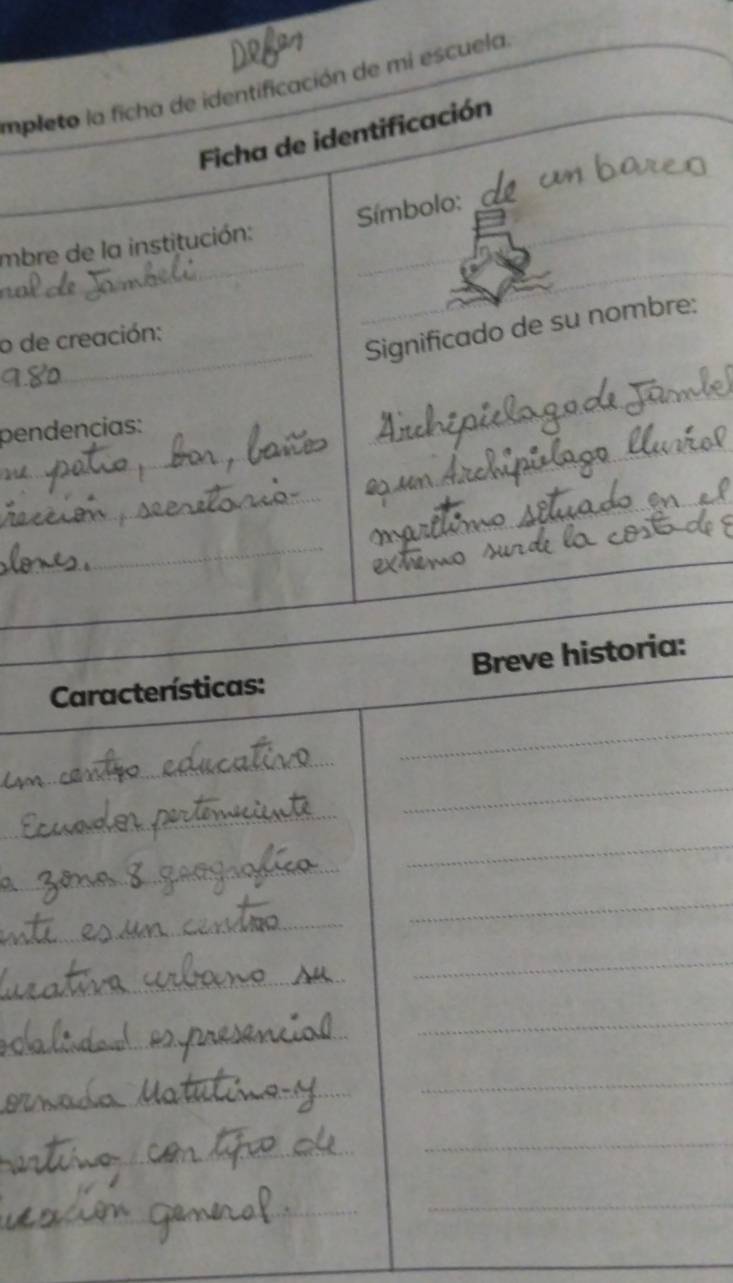 Deber
mpleto la ficha de identificación de mi escuela.
Ficha de identificación
mbre de la institución:
nal de Jambeli
o de creación:
980
pendencias:
ne patio, bar, baños
irección, secretario-
lones.
Símbolo: de un barco
Significado de su nombre:
Archipielago de Jambel
es un Archipielago fluvial
maritimo situado en el
extremo sur de la costa de e
Características:
um centro educativo
Ecuador perteneciente
a zona 8 geografica
ente es un centro
ducativa urbano su
odalidad es presencial
ornada Matutina-y
pertina, con tipo de
ucación general.
Breve historia: